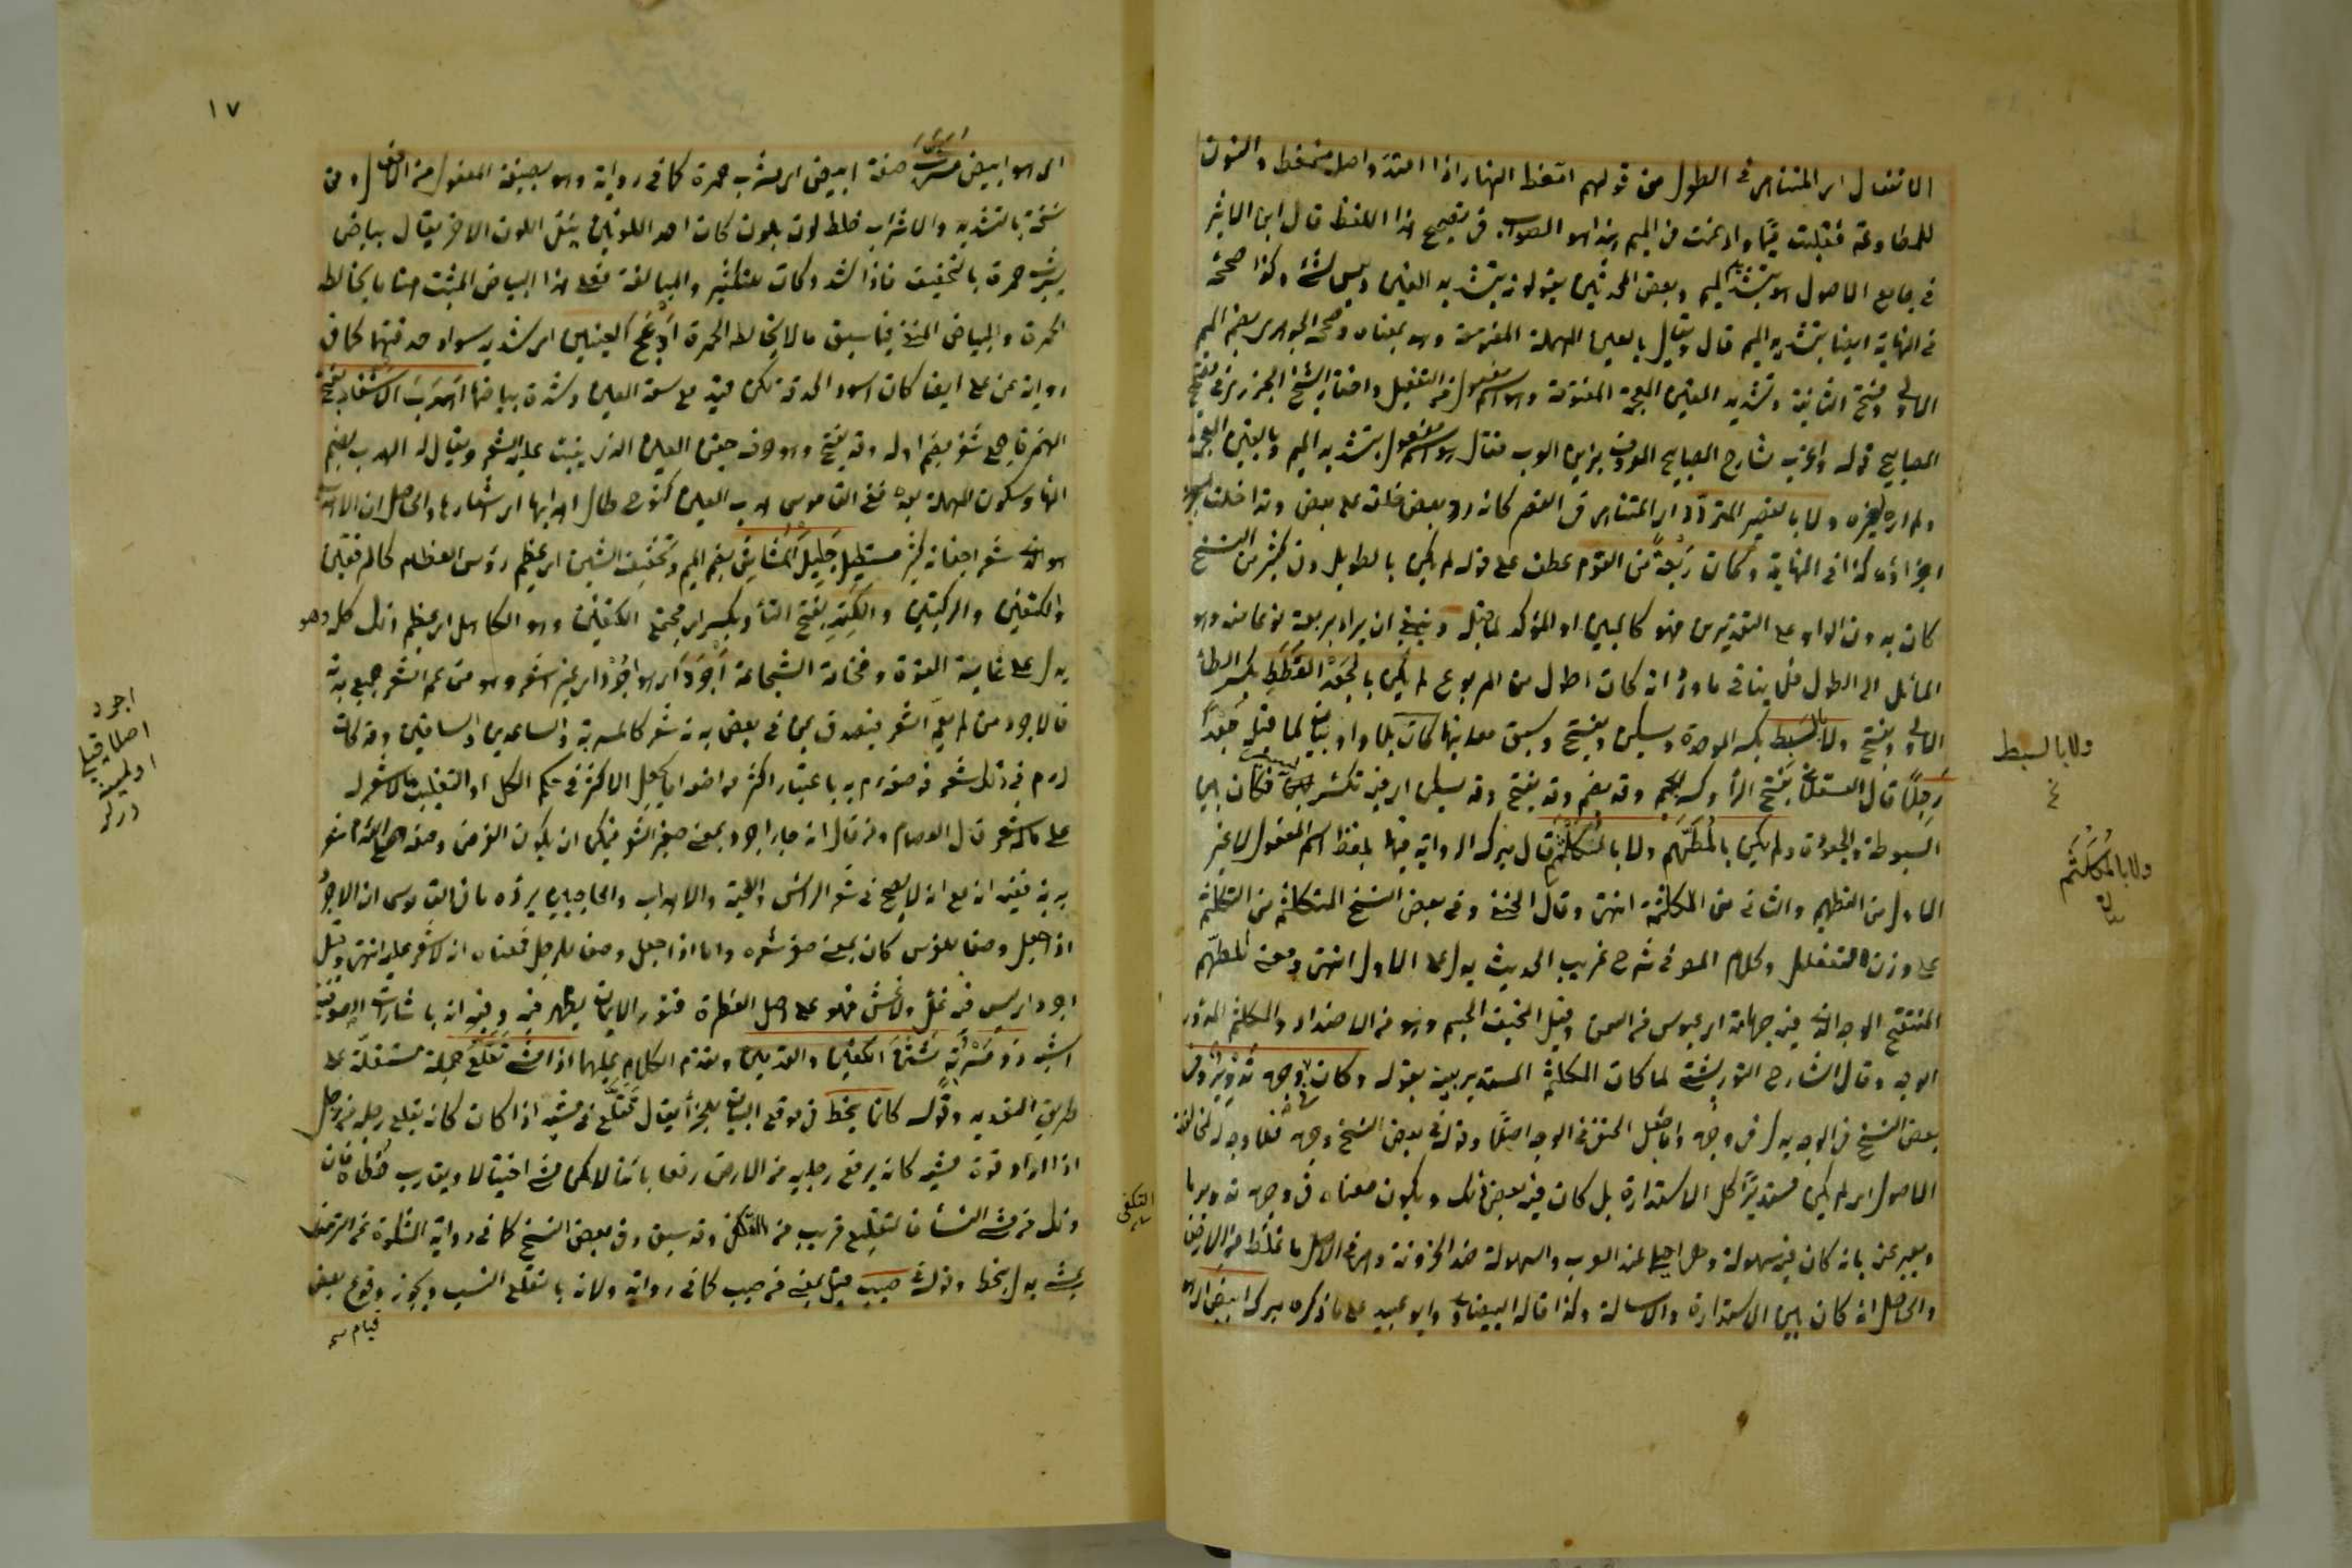 الانفعال اى المتناهى فى الطول من قولهم امغط النهار اذا امتد واصله منمغط والنون
للمطاوعة فقلبت ميما وادغمت فى الميم هذا هو الصواب فى تصحيح هذا اللفظ قال ابن الاثير
فى جامع الاصول هو بتشديد الميم وبعض المحدثين يقولونه بتشديد الغين وليس بشئ وكذا صححه
فى النهاية ايضا بتشديد الميم قال ويقال بالعين المهملة المفتوحة وهو بمعناه وصححه الجوهرى بضم الميم
الاولى وفتح الثانية وتشديد الغين المعجمة المفتوحة وهو اسم مفعول من التفعيل واختاره الشيخ الجزرى فى تصحيح
المصابيح قوله واغرب شارح المصابيح المعروف بزين العرب فقال هو اسم مفعول بتشديد الميم وبالغين المعجمة
ولم اره لغيره ولا بالقصير المتردد اى المتناهى فى القصر كانه رد بعض خلقه على بعض وتداخلت
اجزاؤه كذا فى النهاية وكان ربعة من القوم عطف على قوله لم يكن بالطويل وفى كثير من النسخ
كان بدون الواو على التقديرين فهو كالمبين او المؤكد لما قبله وينبغى ان يراد بربعة نوعا منه وهو
المائل الى الطول فلا ينافى ما ورد انه كان اطول من المربوع لم يكن بالجعد القطط بكسر الطاء
الاولى وبفتح ولا بالسبط بكسر الموحدة ويسكن ويفتح وسبق معانيها كان بلا واو بيان لما قبله جعدا
رجلا قال العسقلانى بفتح الراء وكسر الجيم وقد يضم وقد يفتح وقد يسكن اى فيه تكسر يسير فكان بين
السبوطة والجعودة ولم يكن بالمطهم ولا بالمكلثم قال ميرك الرواية فيهما بلفظ اسم المفعول لا غير
الاول من التطهيم والثانى من الكلثمة انتهى وقال الحنفى وفى بعض النسخ المتكلثم من التكلثم
على وزن التفعلل وكلام المص فى شرح غريب الحديث يدل على الاول انتهى ومعنى المطهم
المنتفخ الوجه الذى فيه جهامة اى عبوس من السمن وقيل النحيف الجسم وهو من الاضداد والمكلثم المدور
الوجه وقال الشارح التوربشتى لما كان المكلثم المستدير بينه بقوله وكان فى وجهه تدوير وفى
بعض النسخ فى الوجه بدل فى وجهه واما جعل الحنفى فى الوجه اصلا وقوله فى بعض النسخ وجهه فلا وجه له لمخالفة
الاصول اى لم يكن مستديرا كل الاستدارة بل كان فيه بعض ذلك ويكون معناه فى وجهه تدوير ما
ويعبر عنه بانه كان فيه سهولة وهى احلى عند العرب والسهولة ضد الحزونة وهى فى الاصل ما غلظ من الارض
والحاصل انه كان بين الاستدارة والاسالة وكذا قاله البيضاوى وابو عبيد على ما ذكره ميرك ابيض
ولا بالسبط
ولا بالمكلثم
١٧
اى هو ابيض مشرب صفة ابيض اى يشرب حمرة كما فى رواية وهو بصيغة المفعول من الافعال وفى
نسخة بالتشديد والاشراب خلط لون بلون كان احد اللونين يسقى اللون الاخر يقال بياض
يشرب حمرة بالتخفيف فاذا شدد كان للتكثير والمبالغة فعلى هذا البياض المثبت هنا ما يخالطه
الحمرة والبياض المنفى فيما سبق مالا يخالطه الحمرة ادعج العينين اى شديد سواد حدقتهما كما فى
رواية عن على ايضا كان اسود الحدقة لكن قيد مع سعة العين وشدة بياضها اهدب الاشفار بفتح
الهمزة جمع شفر بضم اوله وقد يفتح وهو حرف جفن العين الذى ينبت عليه الشعر ويقال له الهدب بضم
الهاء وسكون المهملة بعده ففى القاموس هدب العين كفرح طال اهدابها اى اشفارها والحاصل ان الاهدب
هو الذى شعر اجفانه كثير مستطيل جليل المشاش بضم الميم وتخفيف الشين اى عظيم رؤس العظام كالمرفقين
والكتفين والركبتين والكتد بفتح التاء وبكسر اى مجتمع الكتفين وهو الكاهل اى عظيم ذلك كله وهو
يدل على نهاية القوة وفخامة الشجاعة اجرد اى هو اجرد اى غير اشعر وهو من عم الشعر جميع بدنه
فالاجرد من لم يعم الشعر فيصدق بمن فى بعض بدنه شعر كالمسربة والساعدين والساقين وقد كان
له صم فى ذلك شعر فوصفه صم به باعتبار اكثر مواضعه اما بجعل الاكثر فى حكم الكل او التغليب مالا شعر له
على ماله شعر قال العصام ومن قال انه جاء اجرد بمعنى صغير الشعر فيمكن ان يكون الغرض وصفه
بدنه ففيه انه مع انه لا يصح فى شعر الراس واللحية والاهداب والحاجبين يرده ما فى القاموس ان الاجرد
اذا جعل وصفا للفرس كان بمعنى صغر شعره واما اذا جعل وصفا للرجل فمعناه انه لا شعر عليه انتهى وقيل
اجرد اى ليس فيه غل ولا غش فهو على اصل الفطرة فنور الايمان يظهر فيه وفيه انه باشارات الصوفية
اشبه ذو مسربة شثن الكفين والقدمين وتقدم الكلام عليهما اذا مشى تقلع جملة مستقلة على
طريق التعديد وقوله كانما ينحط فى موقع البيان للجزاء يقال تقلع فى مشيه اذا كان كانه يقلع رجله من وحل
اذا اراد قوة مشيه كانه يرفع رجليه من الارض رفعا باينا لا كمن مشى اختيالا ويقارب خطاه فان
ذلك من مشى النساء فالتقلع قريب من التكفى وقد سبق وفى بعض النسخ كما فى رواية المشكوة عن الترمذى
يمشى بدل ينحط وقوله فى صبب قيل بمعنى من صبب كما فى رواية ولانه بالتقلع انسب ويجوز وقوع بعض
قيام
اجرد
التكفى